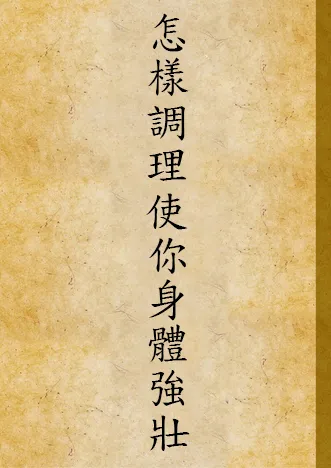 怎樣調理使你身體強壯